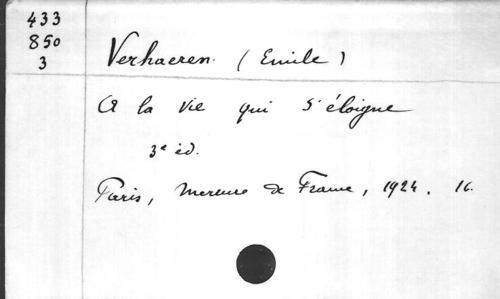 433
850
3
Verhaeren. (Emile)
A la vie qui s'éloigne
3e éd.
Paris, Mercure de France, 1924. 16.